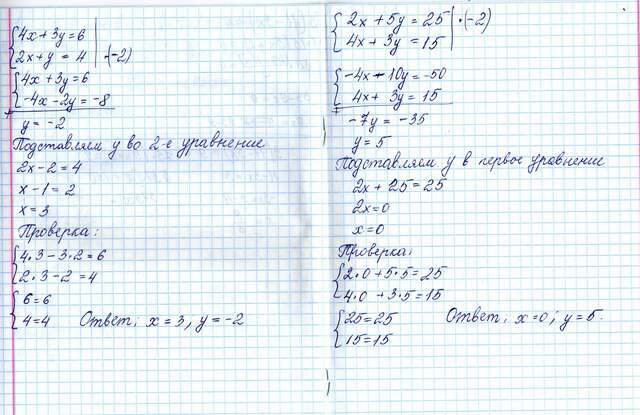 4x + 3y = 6
2x + y = 4 | · (-2)
4x + 3y = 6
-4x - 2y = -8
y = -2
Подставляем y во 2-е уравнение
2x - 2 = 4
x - 1 = 2
x = 3
Проверка:
4 · 3 - 3 · 2 = 6
2 · 3 - 2 = 4
6 = 6
4 = 4 Ответ: x = 3, y = -2
2x + 5y = 25 | · (-2)
4x + 3y = 15
-4x - 10y = -50
4x + 3y = 15
-7y = -35
y = 5
Подставляем y в первое уравнение
2x + 25 = 25
2x = 0
x = 0
Проверка:
2 · 0 + 5 · 5 = 25
4 · 0 + 3 · 5 = 15
25 = 25 Ответ: x = 0; y = 5.
15 = 15